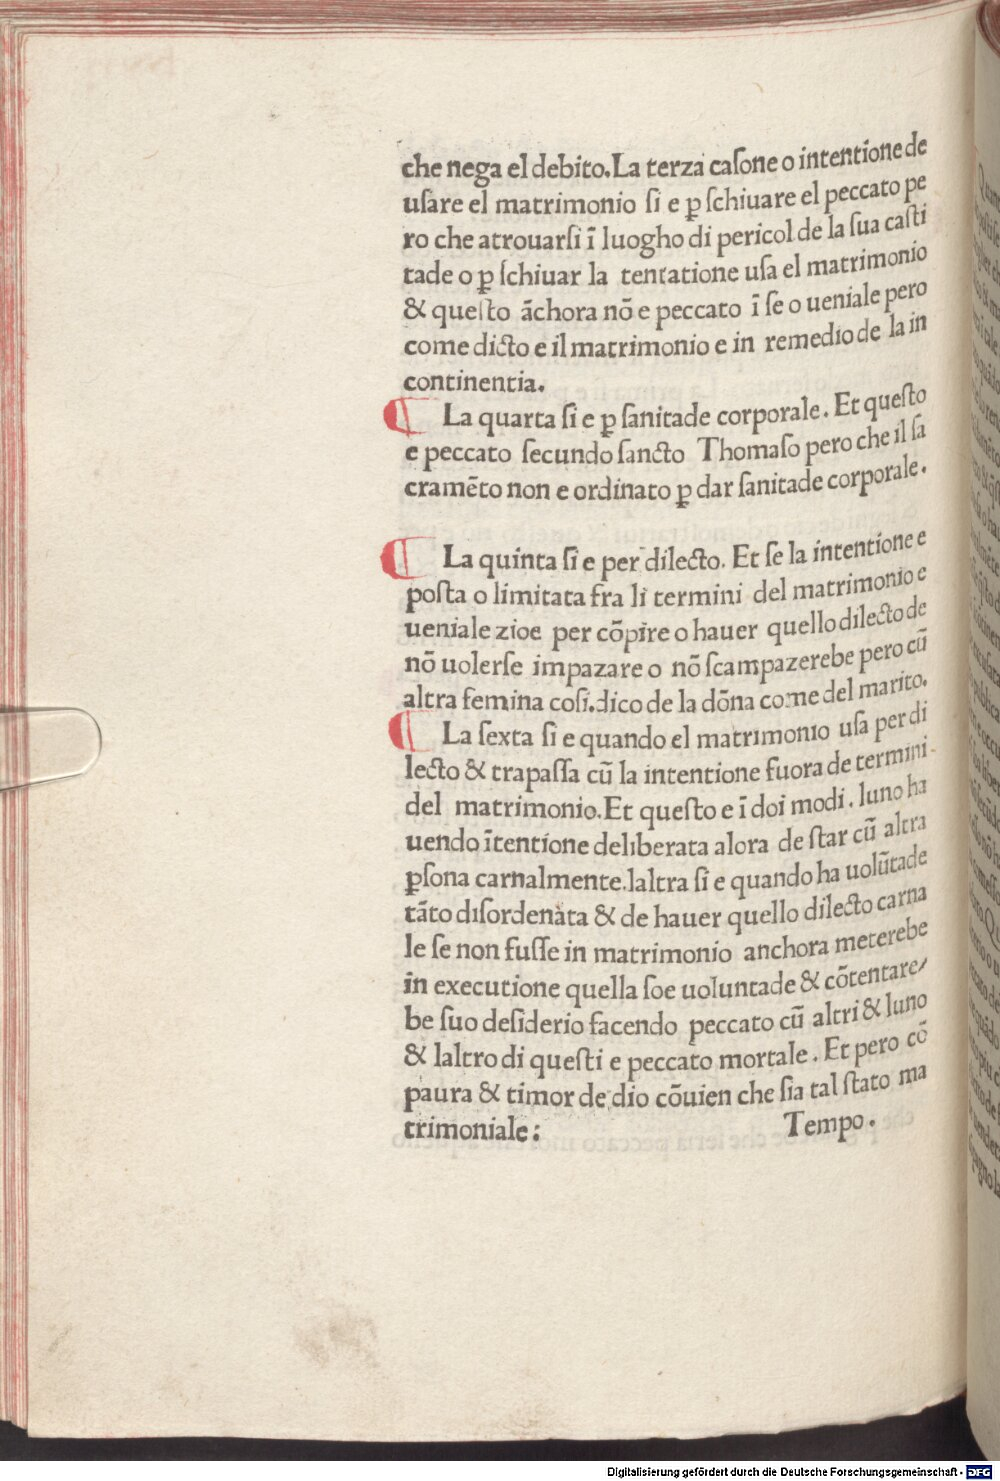 che nega el debito.La terza caſone o intentiõne de
uſare el matrimonio ſi e ꝑ ſchiuare el peccato pe
ro che atrouarſi ĩ luogho di pericol de la ſua caſti
tade o ꝑ ſchiuar la tentatione uſa el matrimonio
& queſto ãchora nõ e peccato ĩ ſe o ueniale pero
come dicto e il matrimonio e in remedio de la in
continentia.
La quarta ſi e ꝑ ſanitade corporale. Et queſto
e peccato ſecundo ſancto Thomaſo pero che il ſa
cramẽto non e ordinato ꝑ dar ſanitade corporale.
La quinta ſi e per dilecto. Et ſe la intentione e
poſta o limitata fra li termini del matrimonio e
ueniale zioe per cõpire o hauer quello dilecto de
nõ uolerſe impazare o nõ ſcampazerebe pero cũ
altra femina coſi.dico de la dõna come del marito.
La ſexta ſi e quando el matrimonio uſa per di
lecto & trapaſſa cũ la intentione fuora de termini
del matrimonio.Et queſto e ĩ doi modi. luno ha
uendo ĩtentione deliberata alora de ſtar cũ altra
ꝑſona carnalmente.laltra ſi e quando ha uolũtade
tãto diſordenata & de hauer quello dilecto carna
le ſe non fuſſe in matrimonio anchora meterebe
in executione quella ſoe uoluntade & cõtentare/
be ſuo deſiderio facendo peccato cũ altri & luno
& laltro di queſti e peccato mortale. Et pero cõ
paura & timor de dio cõuien che ſia tal ſtato ma
trimoniale: Tempo.
Digitalisierung gefördert durch die Deutsche Forschungsgemeinschaft - DFG